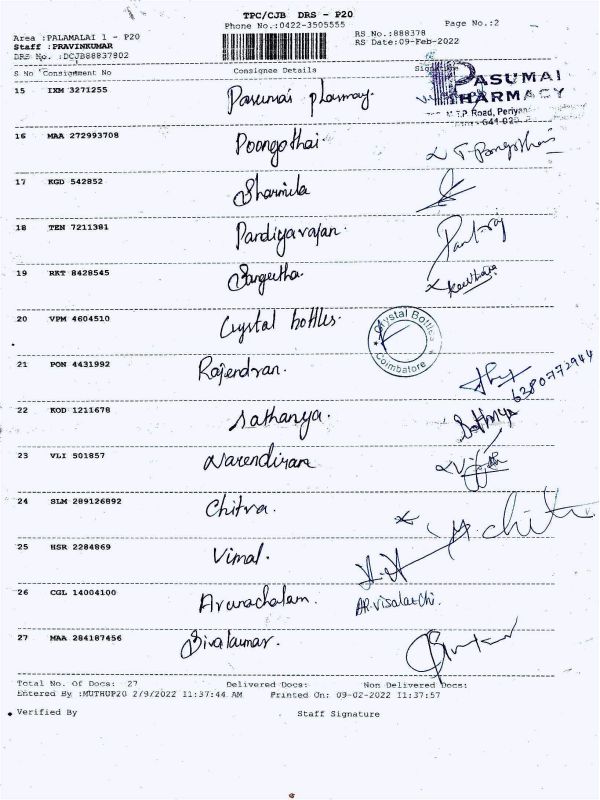 TPC/CJB DRS - P20
Phone No.:0422-3505555 Page No.:2
Area :PALAMALAI 1 - P20 RS No.:888378
Staff :PRAVINKUMAR RS Date:09-Feb-2022
DRS No. :DCJB88837802
S No Consignment No Consignee Details Signature
15 IXM 3271255 Pasumai pharmacy. PASUMAI
PHARMACY
M.T.P. Road, Periyan
641 020
16 MAA 272993708 Poongothai. T. Poongothai
17 KGD 542852 Sharmila
18 TEN 7211381 Pandiyarajan.
19 RKT 8428545 Sangeetha.
20 VPM 4604510 Crystal bottles. Crystal Bottles
Coimbatore
21 PON 4431992 Rajendran.
6380772944
22 KOD 1211678 Sathanya. Sathya
23 VLI 501857 Narendiran
24 SLM 289126892 Chitra.
25 HSR 2284869 Vimal.
26 CGL 14004100 Arunachalam. AR.Visalatchi.
27 MAA 284187456 Sivakumar.
Total No. Of Docs: 27 Delivered Docs: Non Delivered Docs:
Entered By :MUTHUP20 2/9/2022 11:37:44 AM Printed On: 09-02-2022 11:37:57
Verified By Staff Signature